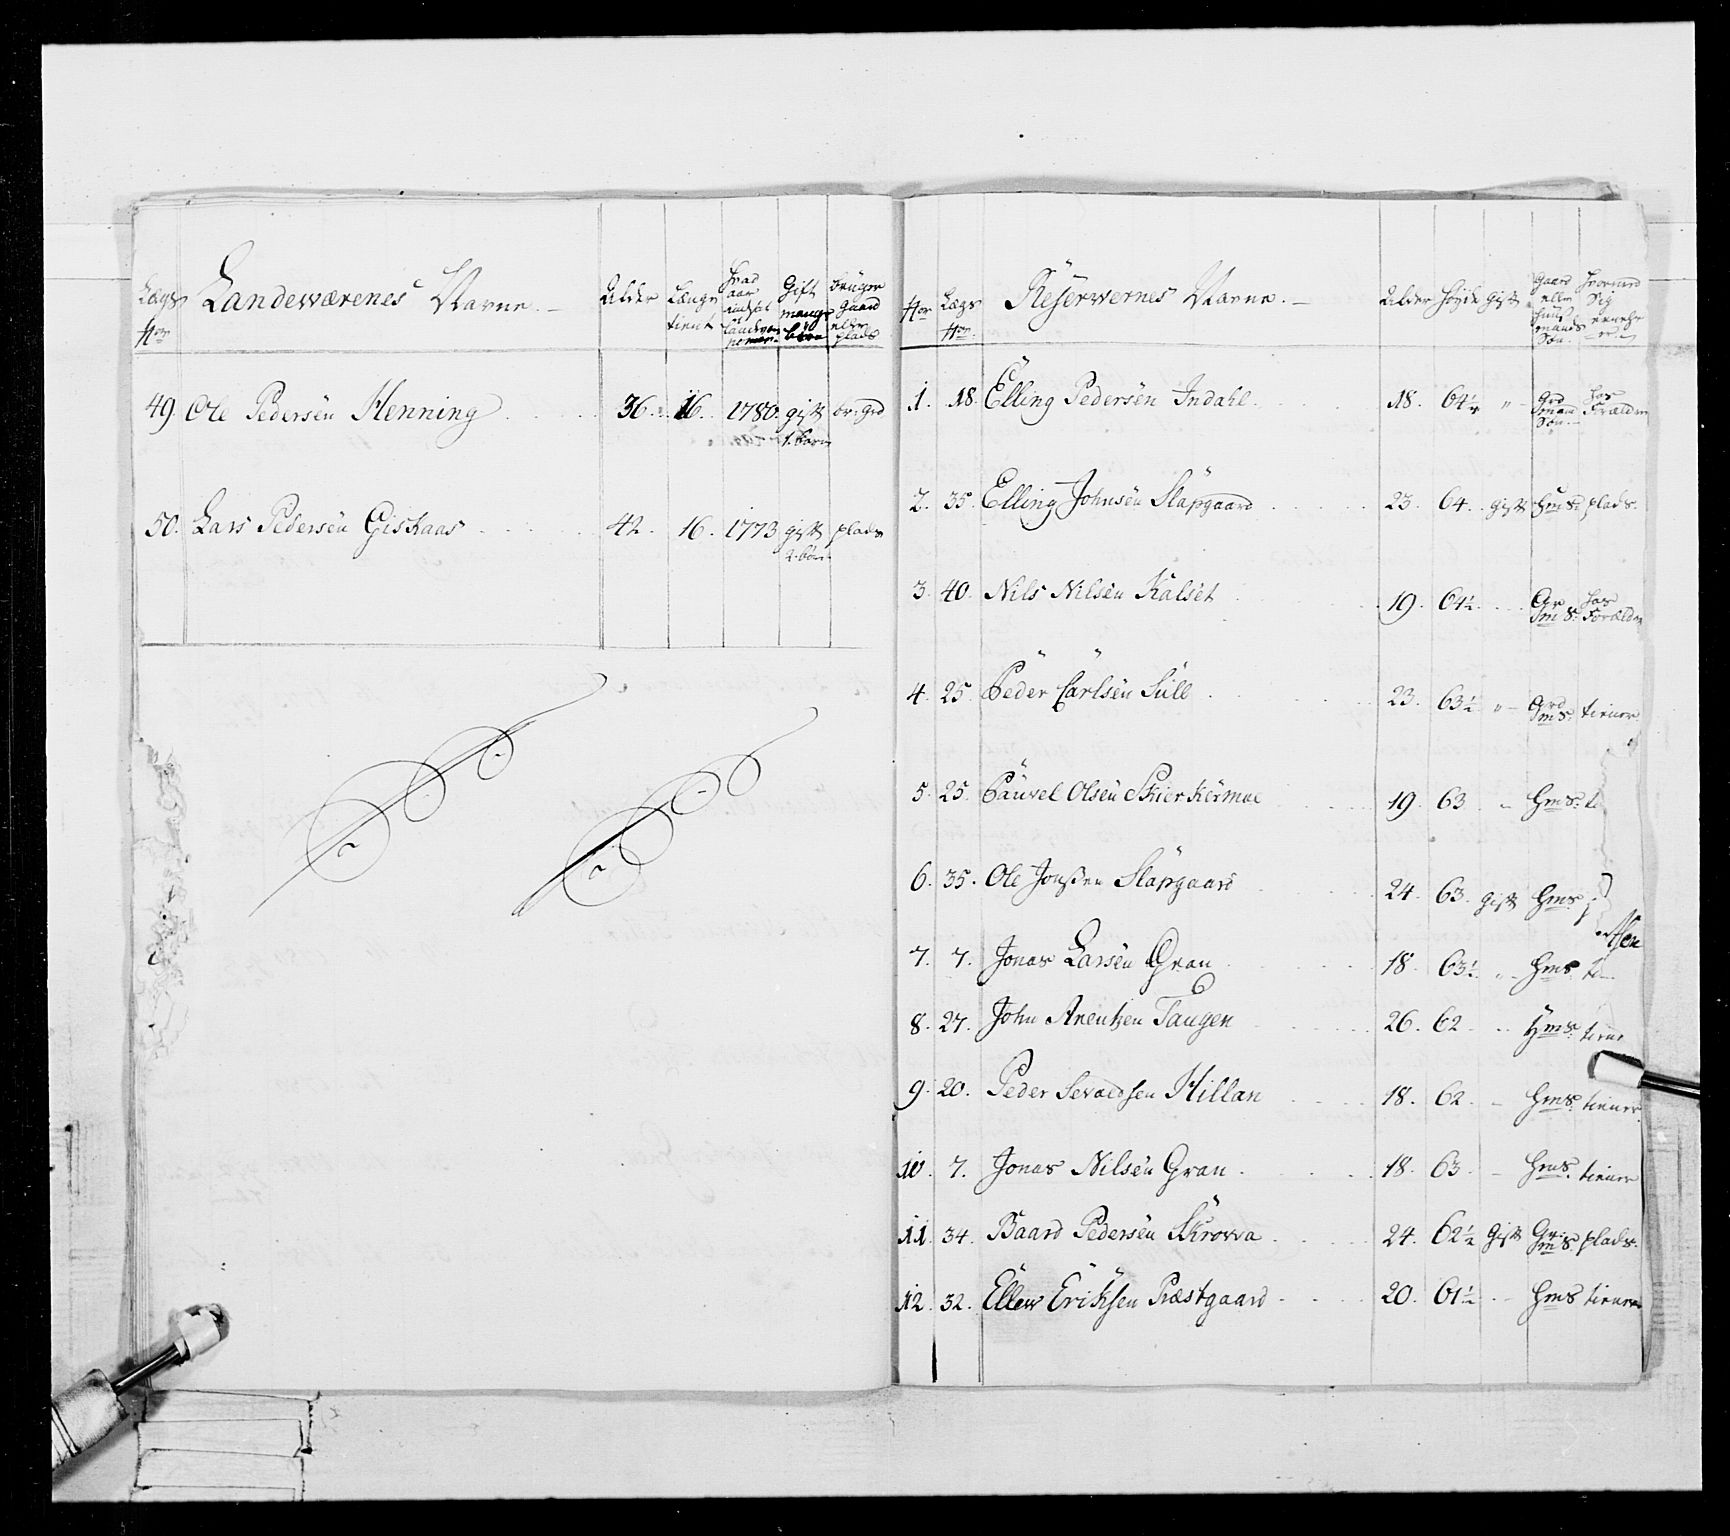 Lægs No Landeværenes Navne. Alder Længe tient Hvad aar Gift mange børn bruger Gaard eller plads
49. Ole Pedersen Henning 36. 16. 1780. gift br: Grd
1. barn
50. Lars Pedersen Giskaas 42. 16. 1773 gift plads
2. børn
No Lægs No Reserwernes Navne. Alder Høyde Gift Gaard eller huus mands Søn. hvormed Sig ernehrer
1. 18. Elling Pedersen Indahl 18. 64¼ " Grd man Søn. hos Forældre
2. 35. Elling Johnsen Slapgaard 23. 64. gift Hms: plads.
3. 40. Nils Nilsen Kalset 19. 64½ Gr ms: hos Forældre
4. 25. Peder Carlsen Sull 23. 63½ " Grd ms: tiener
5. 25. Pauvel Olsen Skierkermoe 19. 63 Hms:
6. 35. Ole Jonssen Slapgaard 24. 63. gift Hms
7. 7. Jonas Larsen Gran 18. 63½ " Hms
8. 27. John Arentzen Taugen 26. 62 Hms: tiene
9. 20. Peder Sevaldsen Hillan 18. 62. Hms: tiener
10. 7. Jonas Nilsen Gran 18. 63. Hms. tiener
11. 34. Baard Pedersen Skrovva 24. 62½ Gift Gr: ms plads.
12. 32. Ellew Eriksen Præstgaard 20. 61½ Hms tiener